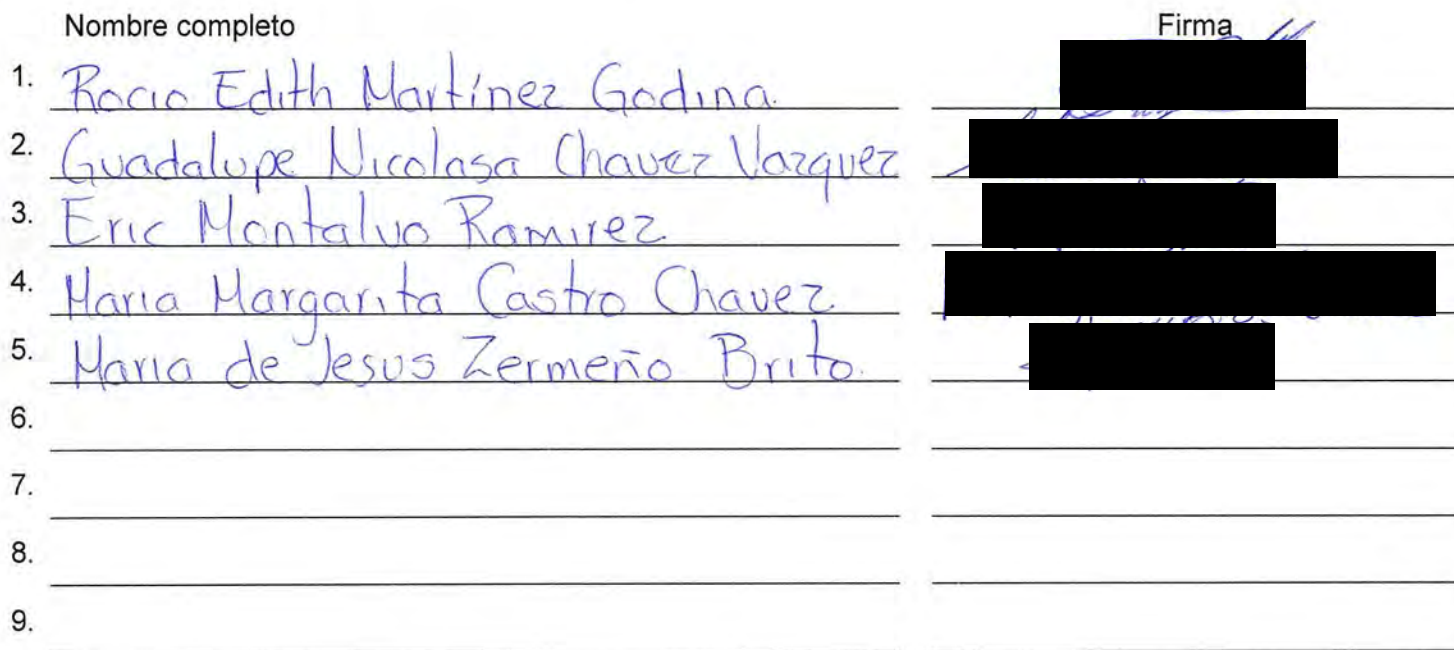 Nombre completo Firma
1. Rocio Edith Martínez Godina
2. Guadalupe Nicolasa Chavez Vazquez
3. Eric Montalvo Ramirez
4. Maria Margarita Castro Chavez
5. Maria de Jesus Zermeño Brito
6.
7.
8.
9.